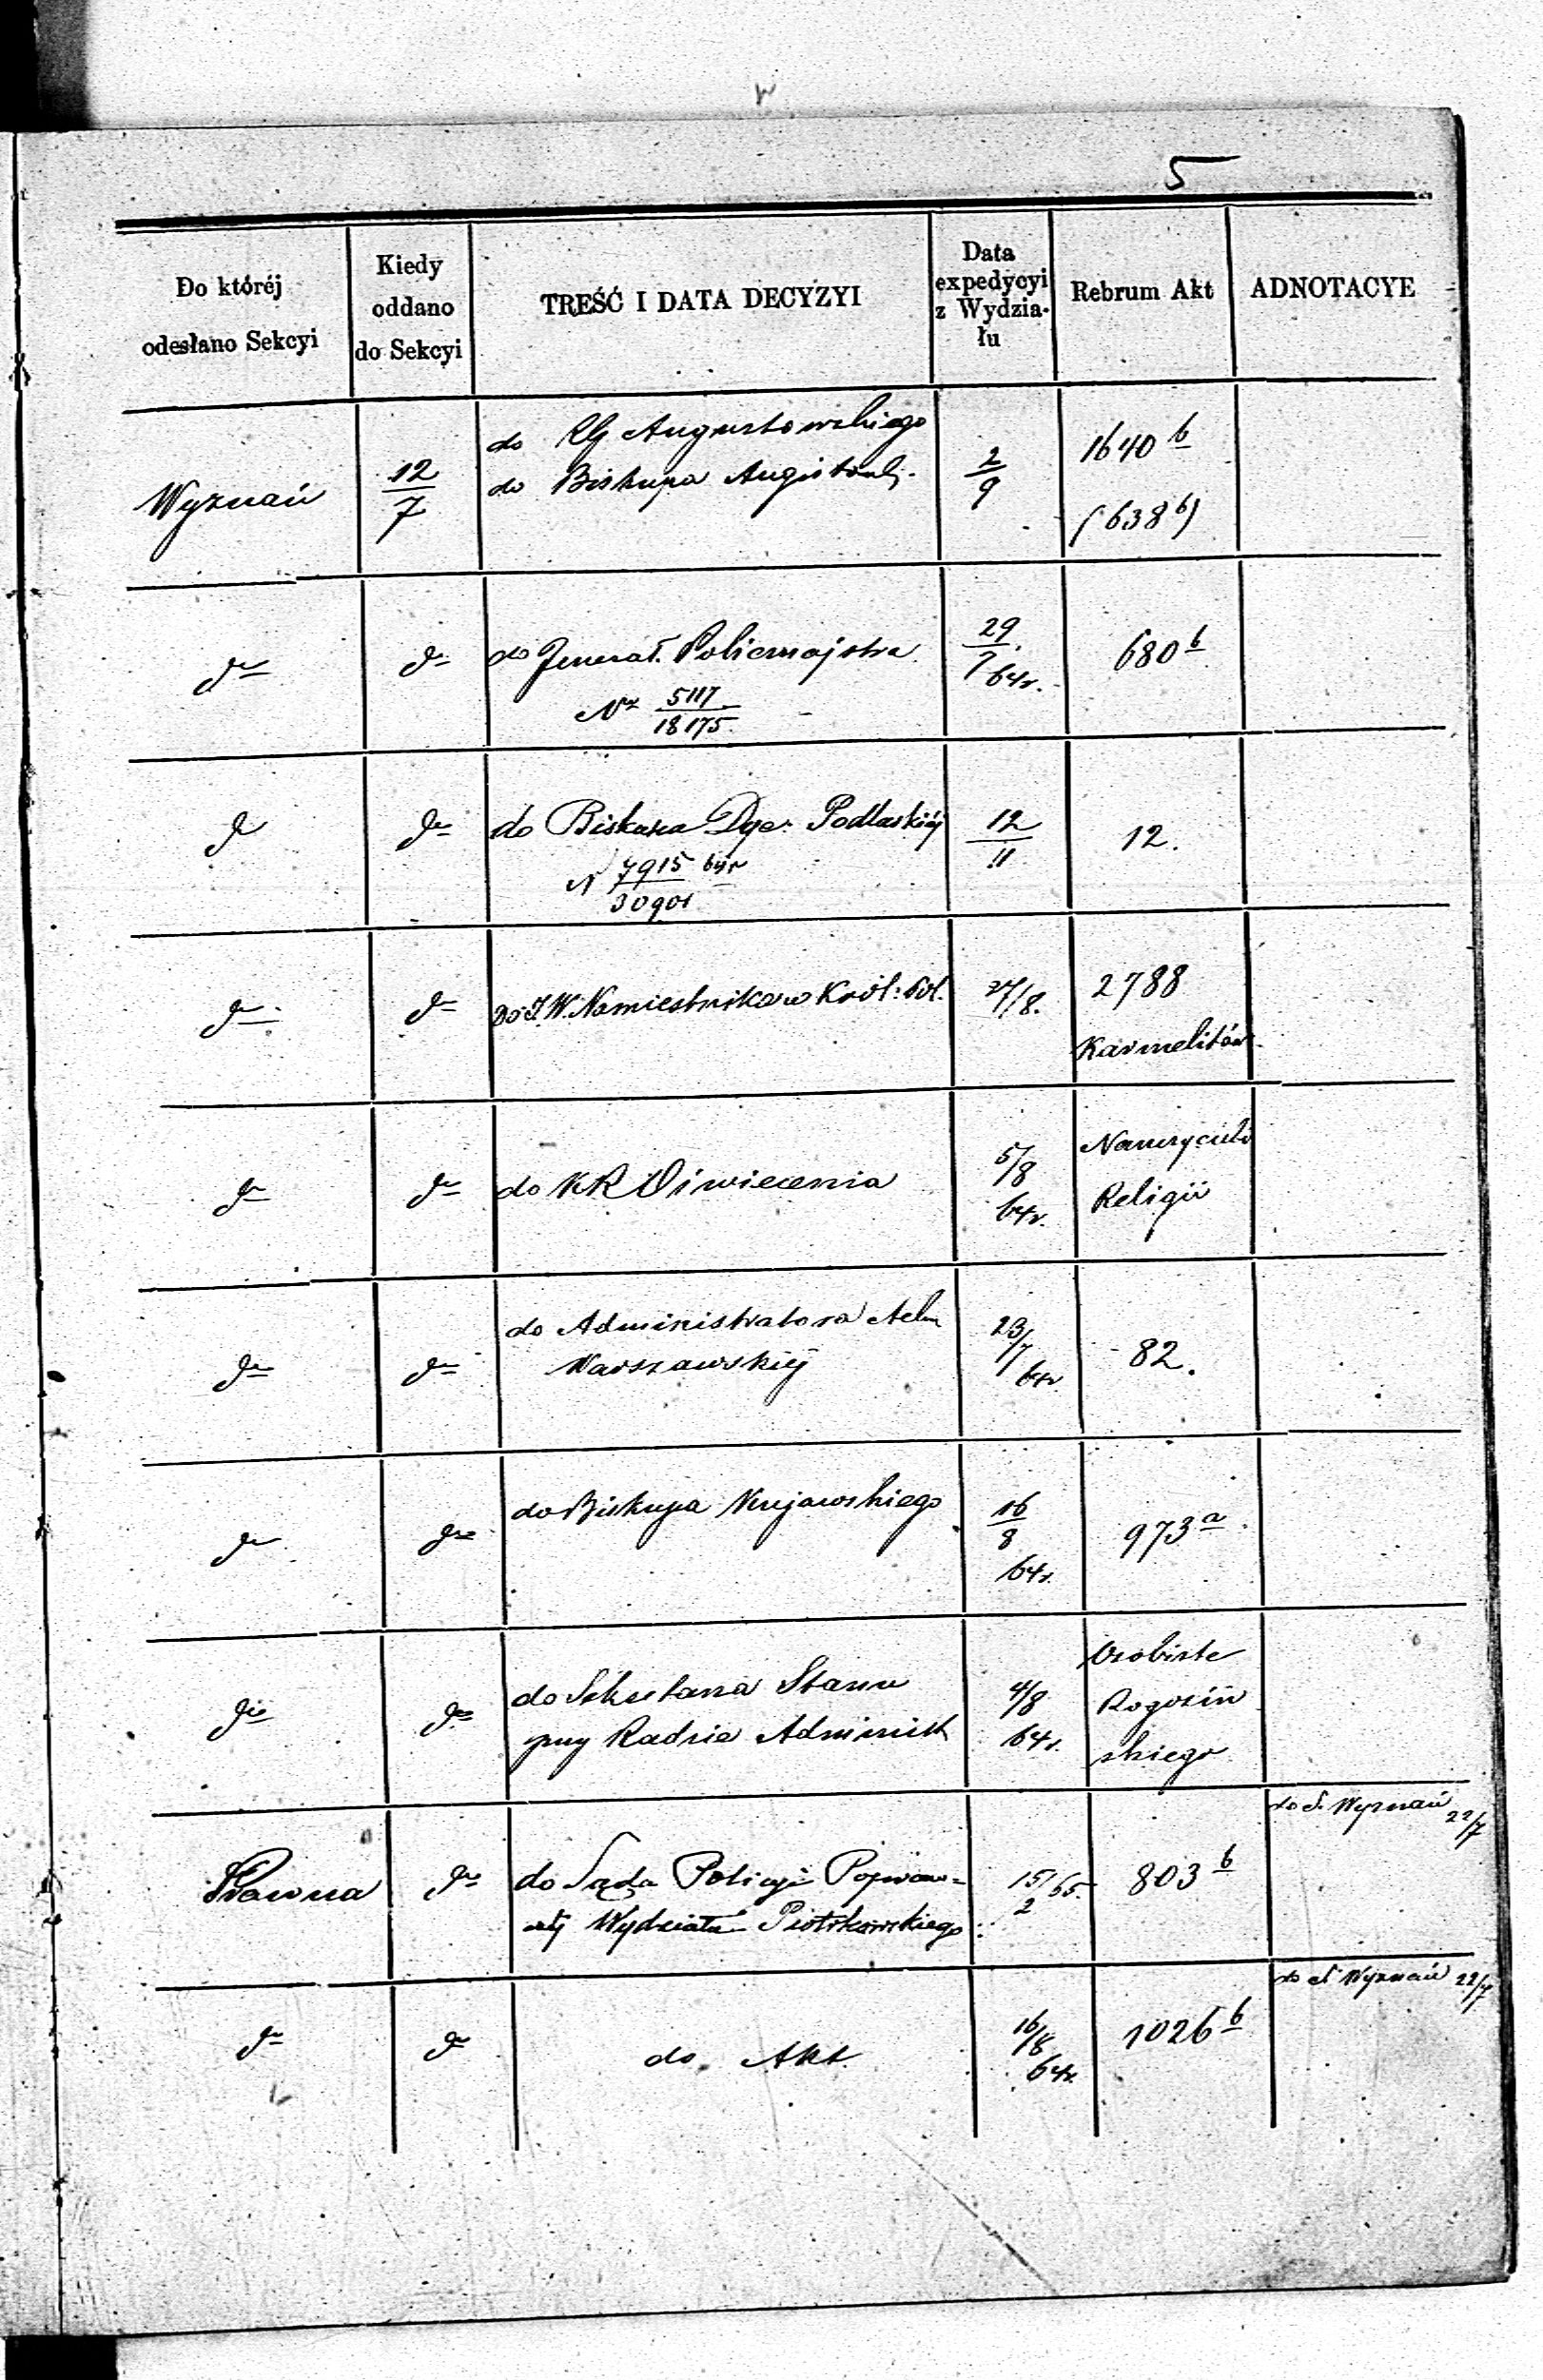 5
Do któréj odesłano Sekcyi
Kiedy oddano do Sekcyi
TREŚĆ I DATA DECYZYI
Data expedycyi z Wydziału
Rebrum Akt
ADNOTACYE
Wyznań
12/7
do RG Augustowskiego
do Biskupa
2/9
1640 b
(638 b)
do
do
do Jenerał. Policmajstra
Nr 5117/18175
29/7 64r.
680 b
do
do
do Biskupa Dye: Podlaskiéj
N 7915/30901 64r
12/11
12.
do
do
Do J.W. Namiestnika w Król: Pol.
27/8.
2788
Karmelitów
do
do
do KR Oświecenia
5/8
64r.
Nauczyciele
Religii
do
do
do Administratora
Warszawskiéj
23/7 64r
82.
do
do
do Biskupa Kujawskiego
16/8
64r.
973 a
do
do
do Sekretarza Stanu
przy Radzie Administ
4/8
64r.
Osobiste
Rogoziń
skiego
Prawna
do
do Sądu Policyi Popraw=
czéj Wydziału Piotrkowskiego
15/2 65.
803 b
do S. Wyznań 22/7
do
do
do Akt
16/8
64r.
1026 b
do S Wyznań 22/7